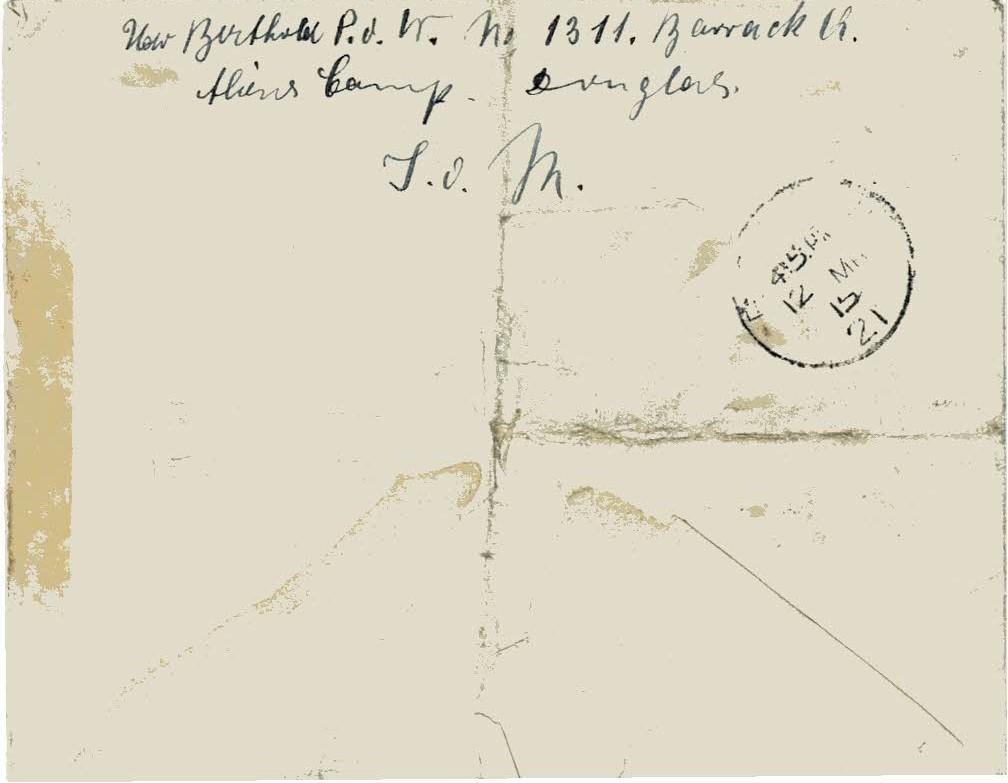 Berthold P.o.W. No 1311. Barrack
Aliens Camp. Douglas.
I.o. M.
4.45PM
12 MR
15
21